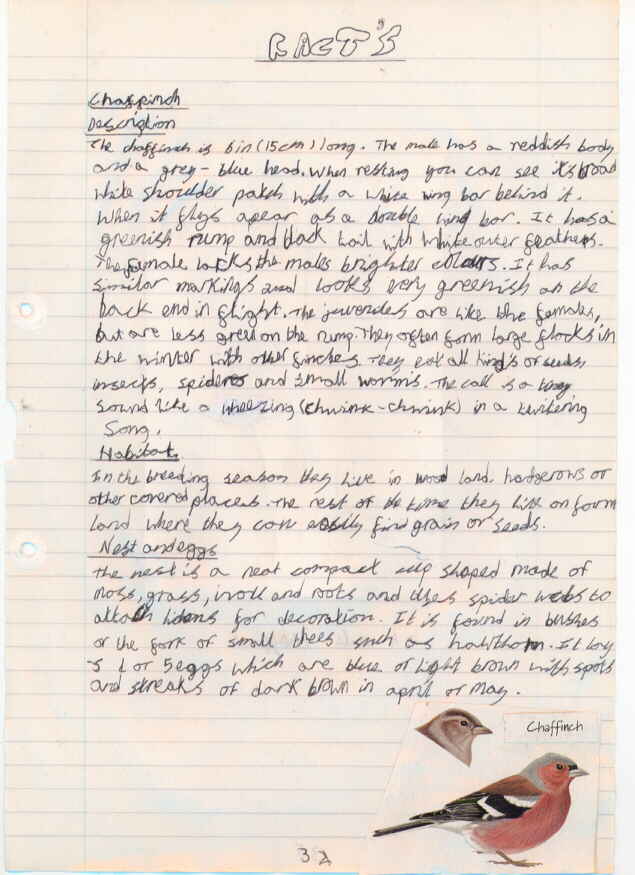 FACT'S
Chaffinch
Description
The chaffinch is 6in (15cm) long. The male has a reddish body
and a grey-blue head. When resting you can see it's broad
white shoulder patch with a white wing bar behind it.
When it flys apear as a double wing bar. It has a
greenish rump and black tail with white outer feathers.
The female lacks the males brighter colours. It has
similar markings and looks very greenish on the
back end in flight. The juveniles are like the females,
but are less green on the rump. They often form large flocks in
the winter with other finches. They eat all kinds of seeds
insects, spiders and small worms. The call is a
sound like a wheezing (chwink-chwink) in a twittering
Song.
Habitat.
In the breeding season they live in wood land, hedgerows or
other covered places. The rest of the time they live on farm
land where they can easily find grain or seeds.
Nest and eggs
The nest is a neat compact cup shaped made of
moss, grass, wool and roots and uses spider webs to
attach lichens for decoration. It is found in bushes
or the fork of small trees such as hawthorn. It lays
5 eggs which are blue or light brown with spots
and streaks of dark brown in april or may.
Chaffinch
32